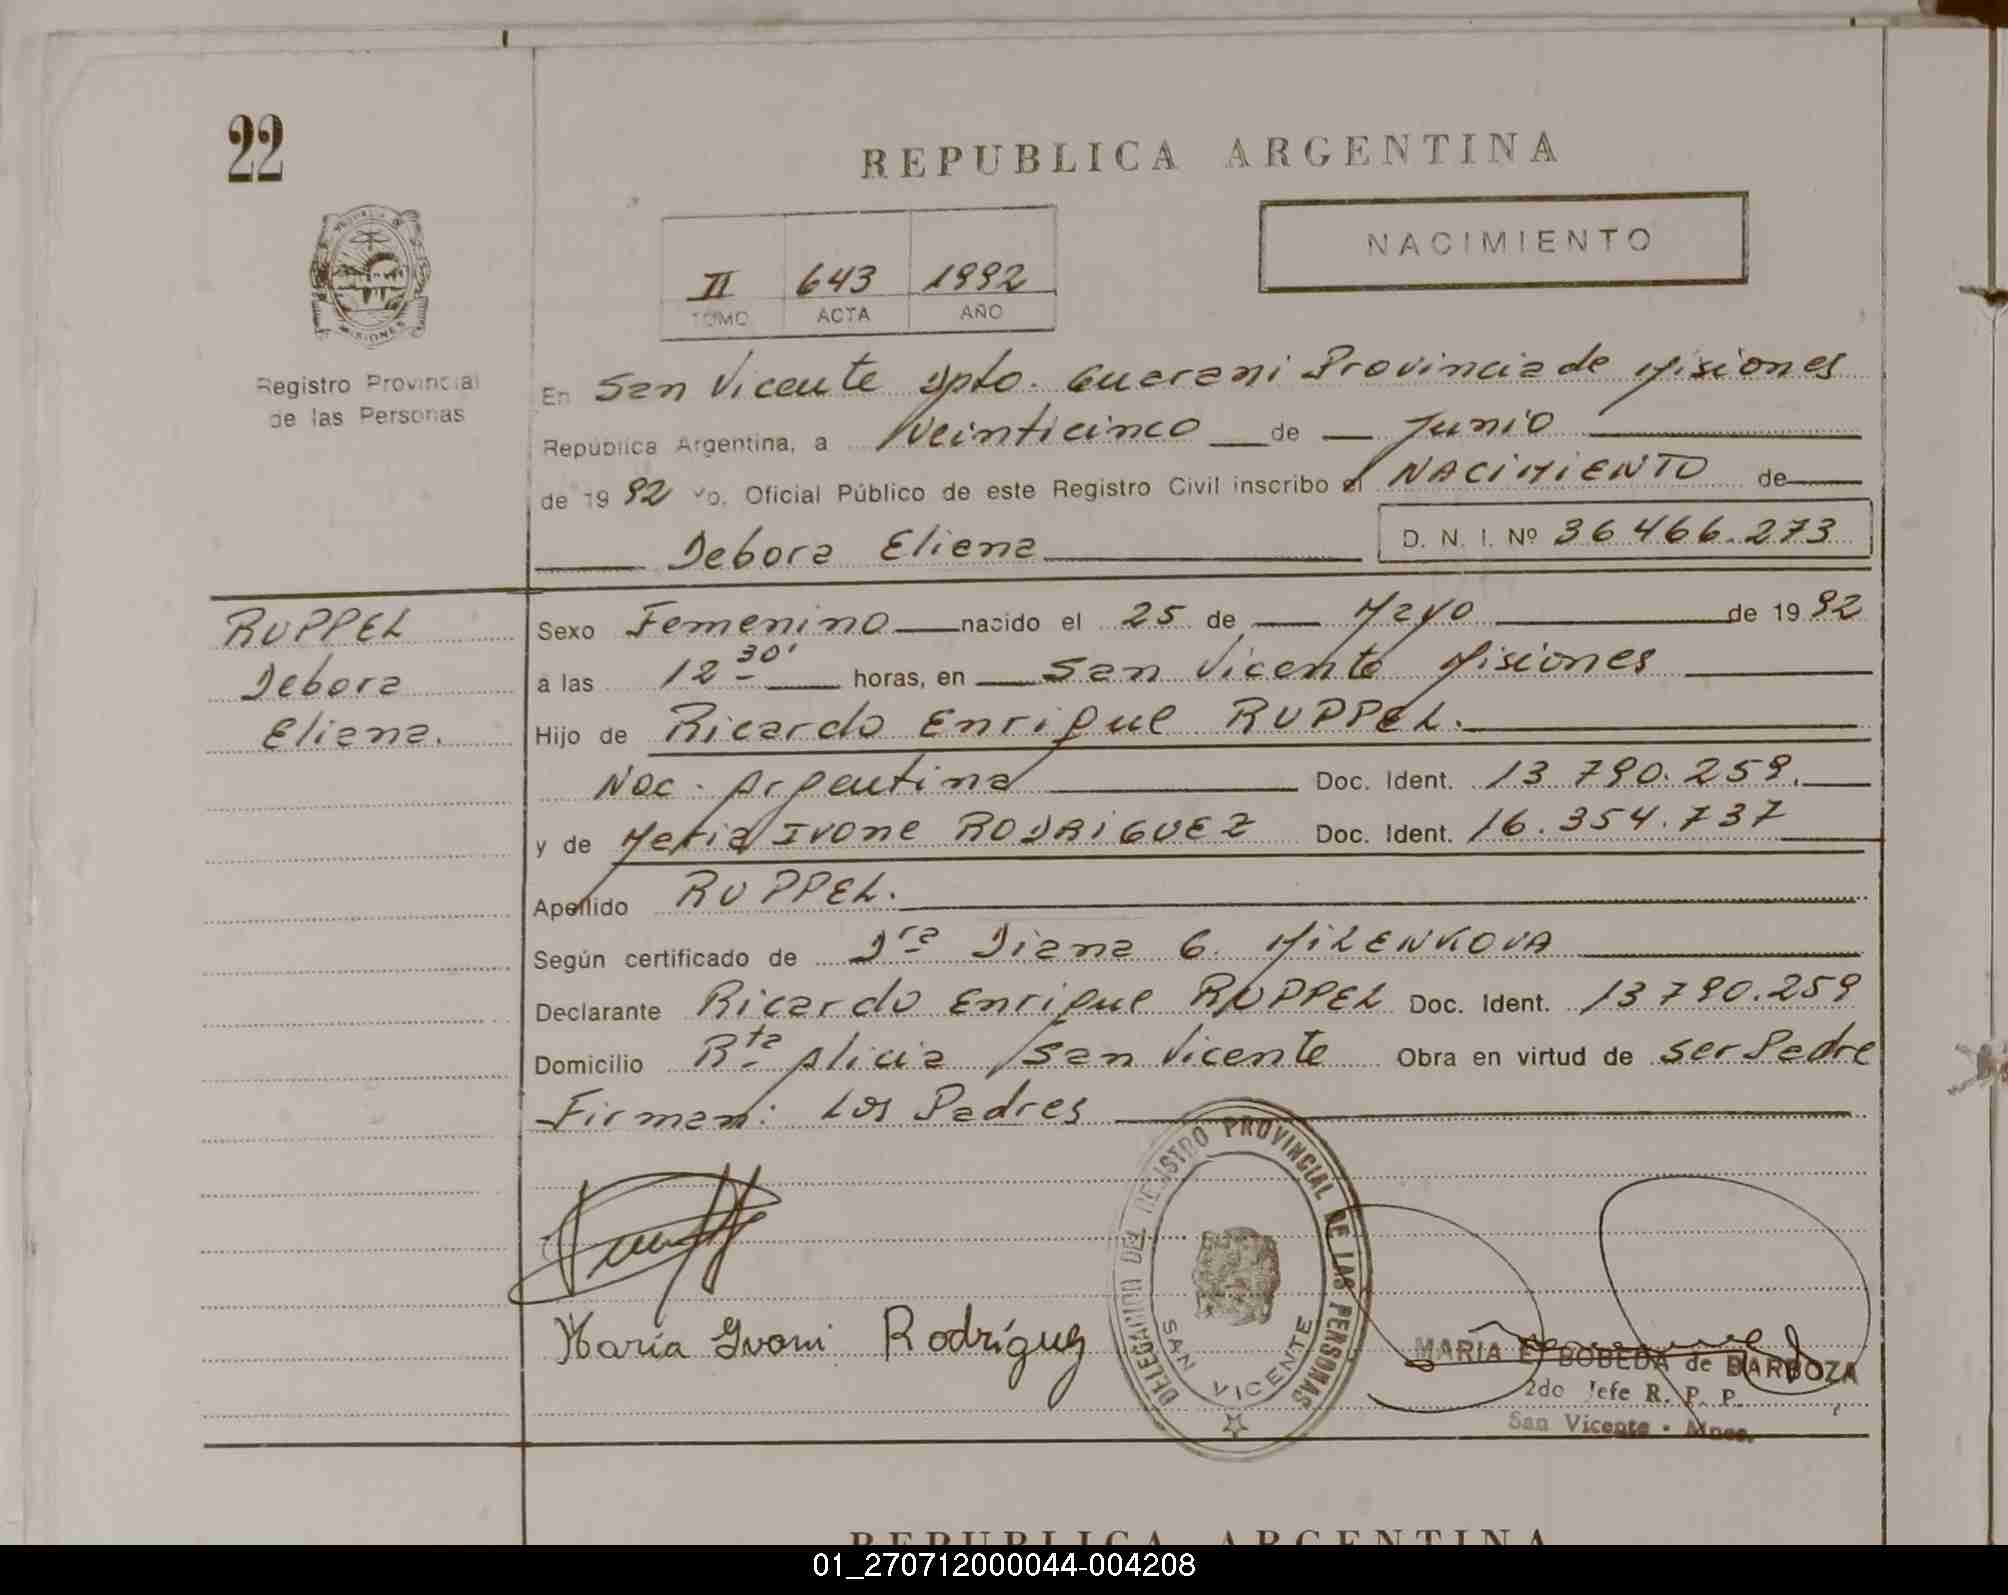 22
REPUBLICA ARGENTINA
NACIMIENTO
II 643 1992
TOMO ACTA AÑO
PROVINCIA DE MISIONES
Registro Provincial
de las Personas
En San Vicente Dpto. Guarani Provincia de Misiones
República Argentina, a Veinticinco de Junio
de 19 92 Yo, Oficial Público de este Registro Civil inscribo el NACIMIENTO de
Debora Eliana D. N. I. Nº 36466.273
RUPPEL
Debora
Eliana.
Sexo Femenino nacido el 25 de Mayo de 19 92
a las 12 30' horas, en San Vicente Misiones
Hijo de Ricardo Enrique RUPPEL.
Nac. Argentina Doc. Ident. 13 790.259.
y de Maria Ivone RODRIGUEZ Doc. Ident. 16.354.737
Apellido RUPPEL.
Según certificado de Dra Diana G. MILENKOVA
Declarante Ricardo Enrique RUPPEL Doc. Ident. 13790.259
Domicilio Rta Alicia San Vicente Obra en virtud de ser Padre
Firman: Los Padres
DELEGACION DEL REGISTRO PROVINCIAL DE LAS PERSONAS
SAN VICENTE
María Ivoni Rodríguez
MARIA E. BOBEDA de BARBOZA
2do Jefe R. P. P.
San Vicente - Mnes.
REPUBLICA ARGENTINA
01_270712000044-004208